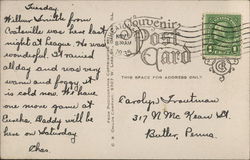 Tuesday.
Wilbur Smith from
Coatsville was here last
night at League. He was
wonderful. It rained
all day and was very
warm and foggy it
is cold now. We have
one more game at
Eureka. Daddy will be
here on Saturday.
Chas.
Souvenir
Post
Card
THIS SPACE FOR ADDRESS ONLY
Carolyn Troutman
317 N. Mc Kean St.
Butler, Penna.